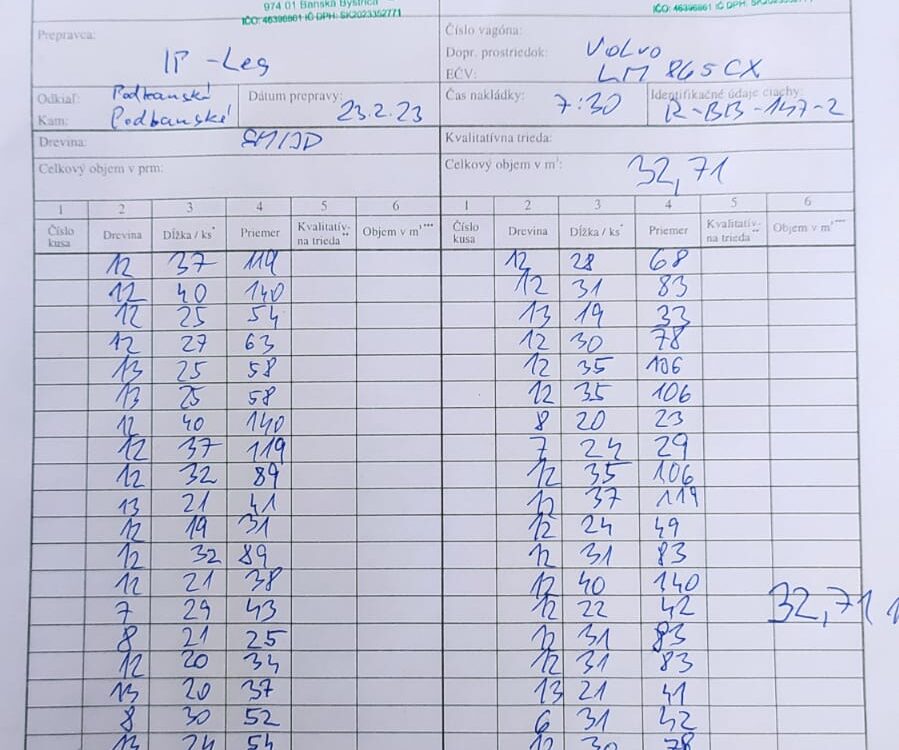 974 01 Banská Bystrica
IČO: 46396861 IČ DPH: SK2023352771
IČO: 46396861 IČ DPH: SK2023352771
Prepravca:
IP-Les
Číslo vagóna:
Dopr. prostriedok: Volvo
EČV: LM 865CX
Odkiaľ: Podbanské
Kam: Podbanské
Dátum prepravy: 23.2.23
Čas nakládky: 7:30
Identifikačné údaje ciachy: R-BB-147-2
Drevina: SM/JD
Kvalitatívna trieda:
Celkový objem v prm:
Celkový objem v m³: 32,71
1 2 3 4 5 6 1 2 3 4 5 6
Číslo kusa Drevina Dĺžka / ks* Priemer Kvalitatív- na trieda** Objem v m³*** Číslo kusa Drevina Dĺžka / ks* Priemer Kvalitatív- na trieda** Objem v m³***
12 37 119 12 28 68
12 40 140 12 31 83
12 25 54 13 19 33
12 27 63 12 30 78
13 25 58 12 35 106
13 25 58 12 35 106
12 40 140 8 20 23
12 37 119 7 24 29
12 32 89 12 35 106
13 21 41 12 37 119
12 19 31 12 24 49
12 32 89 12 31 83
12 21 38 12 40 140
7 29 43 12 22 42 32,71
8 21 25 12 31 83
12 20 34 12 31 83
13 20 37 13 21 41
8 30 52 6 31 42
13 24 54 12 30 78